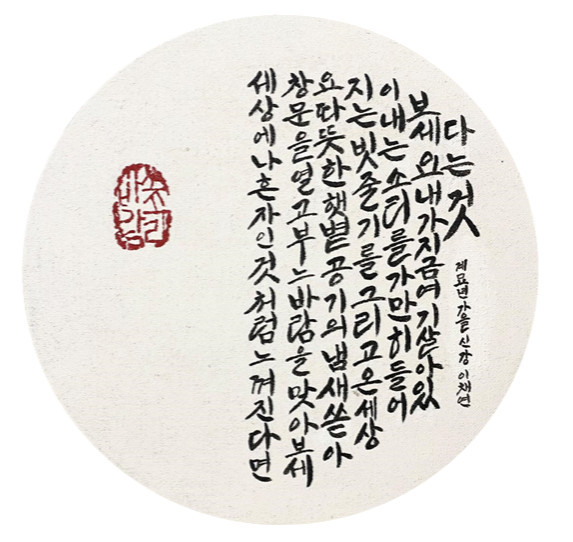 세상에나혼자인것처럼느껴진다면
창문을열고부느바람을맛아보세
요따뜻한햇볕공기의냄새쏟아
지는빗줄기를그리고온세상
이내는소리를가만히들어
보세요내가지금여기살아있
다는것
계묘년가을 신강 이채연